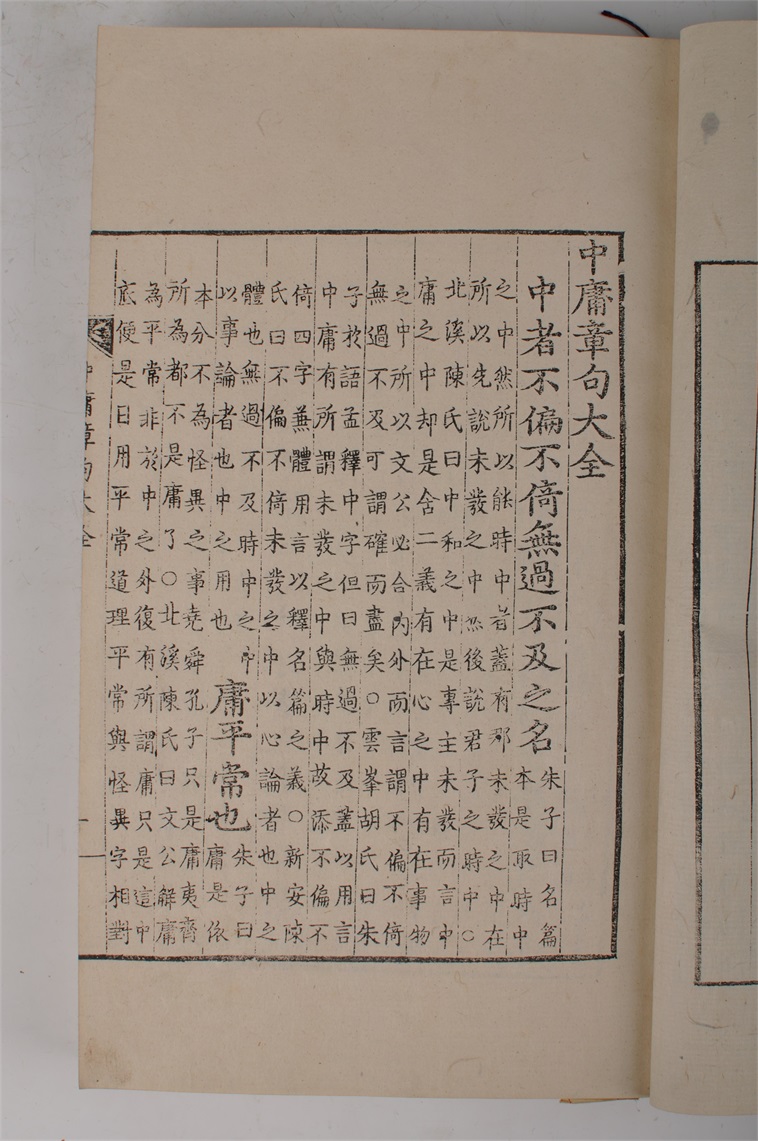 中庸章句大全
中者不偏不倚無過不及之名
朱子曰名篇
本是取時中
之中然所以能時中者蓋有那未發之中在
所以先說未發之中然後說君子之時中○
北溪陳氏曰中和之中是專主未發而言中
庸之中却是含二義有在心之中有在事物
之中所以文公必合內外而言謂不偏不倚
無過不及可謂確而盡矣○雲峯胡氏曰朱
子於語孟釋中字但曰無過不及蓋以用言
中庸有所謂未發之中與時中故添不偏不
倚四字兼體用言以釋名篇之義○新安陳
氏曰不偏不倚未發之中以心論者也中之
體也無過不及時中之中
以事論者也中之用也
庸平常也
朱子曰
庸是依
本分不為怪異之事堯舜孔子只是庸夷齊
所為都不是庸了○北溪陳氏曰文公解庸
為平常非於中之外復有所謂庸只是這中
底便是日用平常道理平常與怪異字相對
中庸章句大全
一